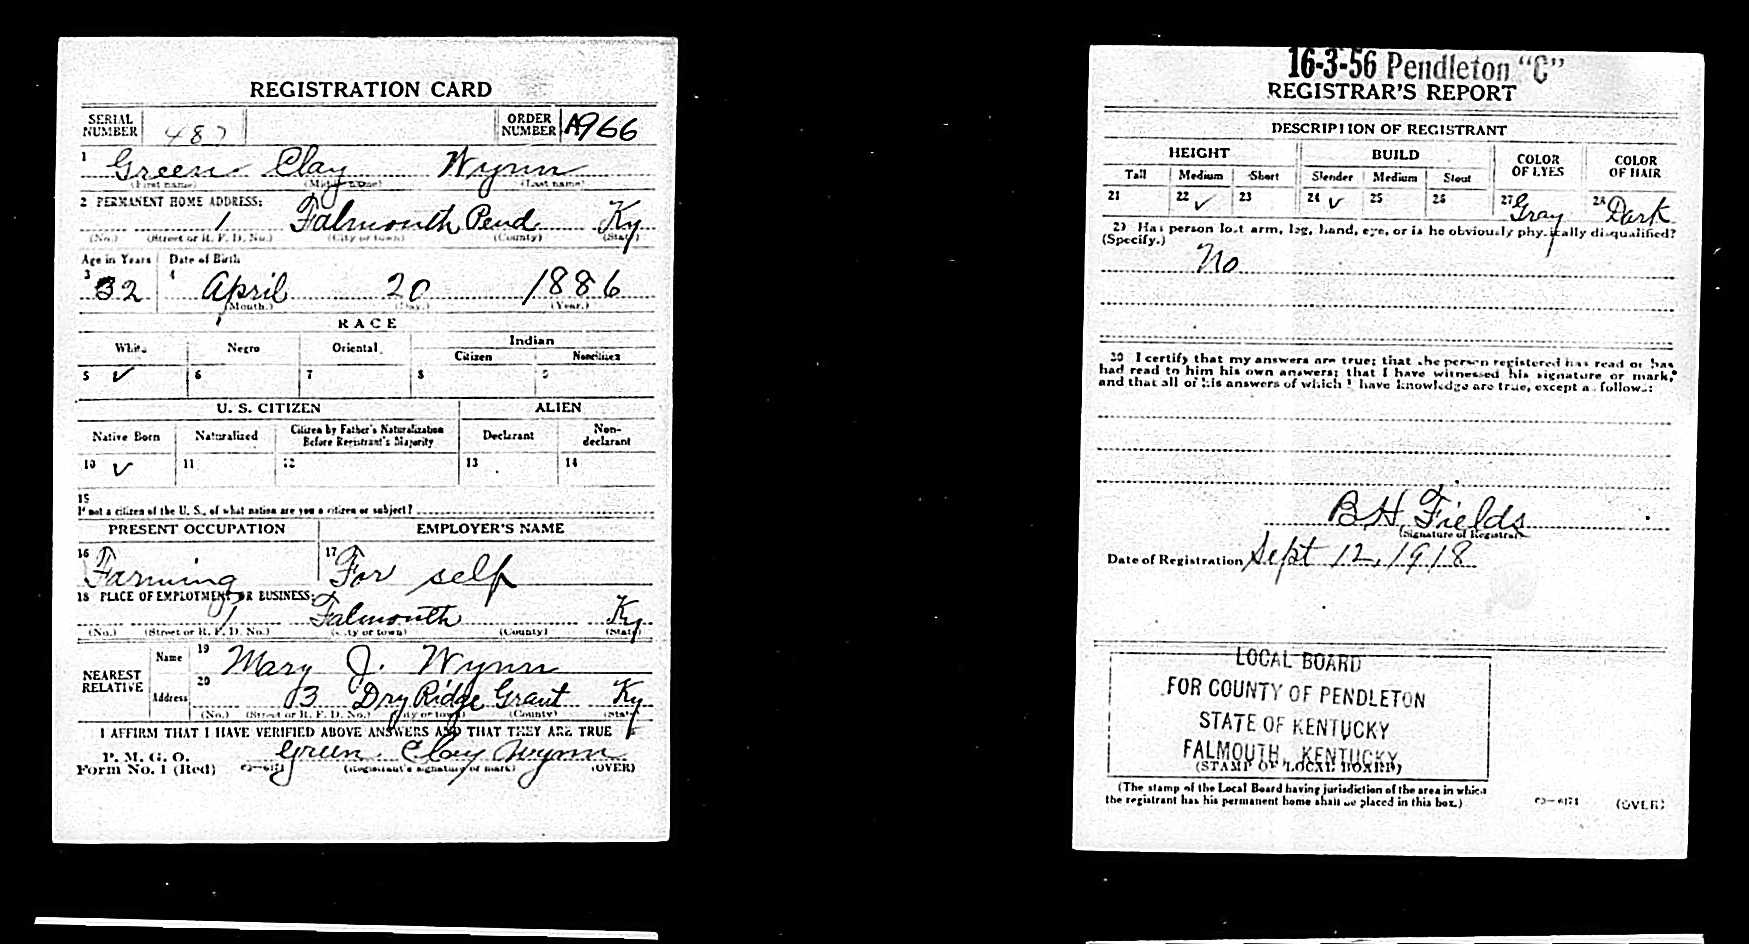 REGISTRATION CARD
SERIAL NUMBER 487 ORDER NUMBER A966
1 Green Clay Wynn
(First name) (Middle name) (Last name)
2 PERMANENT HOME ADDRESS:
1 Falmouth Pend Ky
(No.) (Street or R. F. D. No.) (City or town) (County) (State)
Age in Years Date of Birth
3 32 4 April 20 1886
(Month.) (Day.) (Year.)
RACE
White Negro Oriental Indian
Citizen Noncitizen
5 ✓ 6 7 8 9
U. S. CITIZEN ALIEN
Native Born Naturalized Citizen by Father's Naturalization Before Registrant's Majority Declarant Non-declarant
10 ✓ 11 12 13 14
15
If not a citizen of the U. S., of what nation are you a citizen or subject?
PRESENT OCCUPATION EMPLOYER'S NAME
16 Farming 17 For self
18 PLACE OF EMPLOYMENT OR BUSINESS:
1 Falmouth Ky
(No.) (Street or R. F. D. No.) (City or town) (County) (State)
NEAREST RELATIVE
Name 19 Mary J. Wynn
Address 20 3 Dry Ridge Grant Ky
(No.) (Street or R. F. D. No.) (City or town) (County) (State)
I AFFIRM THAT I HAVE VERIFIED ABOVE ANSWERS AND THAT THEY ARE TRUE
P. M. G. O.
Form No. 1 (Red) Green Clay Wynn
(Registrant's signature or mark) (OVER)
16-3-56 Pendleton "C"
REGISTRAR'S REPORT
DESCRIPTION OF REGISTRANT
HEIGHT BUILD COLOR OF EYES COLOR OF HAIR
Tall Medium Short Slender Medium Stout
21 22 ✓ 23 24 ✓ 25 26 27 Gray 28 Dark
29 Has person lost arm, leg, hand, eye, or is he obviously physically disqualified?
(Specify.)
No
30 I certify that my answers are true; that the person registered has read or has
had read to him his own answers; that I have witnessed his signature or mark,
and that all of his answers of which I have knowledge are true, except as follows:
B H Fields
(Signature of Registrar)
Date of Registration Sept 12, 1918
LOCAL BOARD
FOR COUNTY OF PENDLETON
STATE OF KENTUCKY
FALMOUTH, KENTUCKY
(STAMP OF LOCAL BOARD)
(The stamp of the Local Board having jurisdiction of the area in which
the registrant has his permanent home shall be placed in this box.)
(OVER)